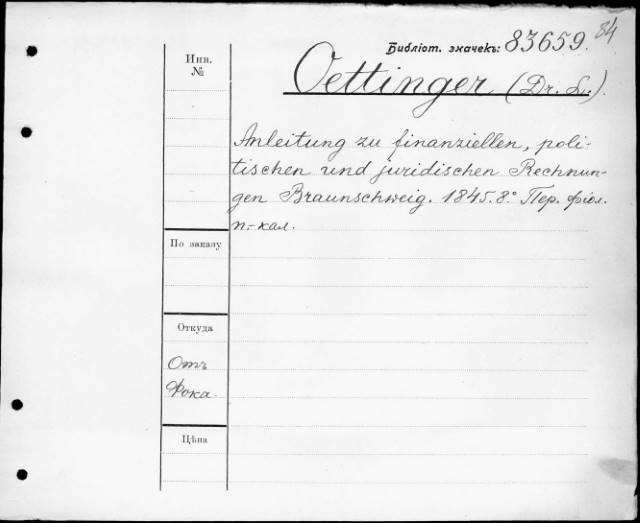 84
Библіот. значекъ: 83659.
Инв.
№
Oettinger (Dr. L.).
Anleitung zu finanziellen, poli-
tischen und juridischen Rechnun-
gen Braunschweig. 1845. 8.° Пер. фіол.
п.-кал.
По заказу
Откуда
Отъ
Фока.
Цѣна